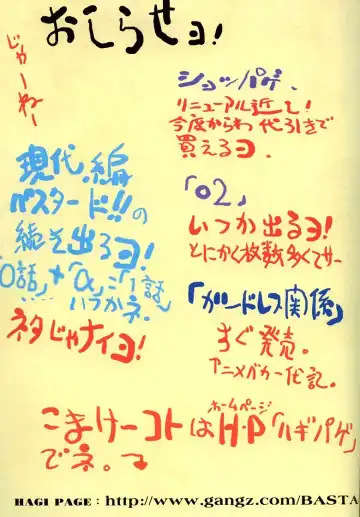 おしらせョ!
じゃーねー
ショッパゲ.
リニューアル近し!
今度からわ 代引きで
買えるョ.
現代.編
バスタード!!の
続きも出るョ!
「0話」+「α」=「1話」
いつかネ.
ネタじゃナイョ!
「02」
いつか出るョ!
とにかく枚数多くてサー
「ガードレス関係」
すぐ発売。
アニメバカ一代記。
こまけーコトはH・P「ハギパゲ」
ホームページ
でネ。
HAGI PAGE : http://www.gangz.com/BASTA